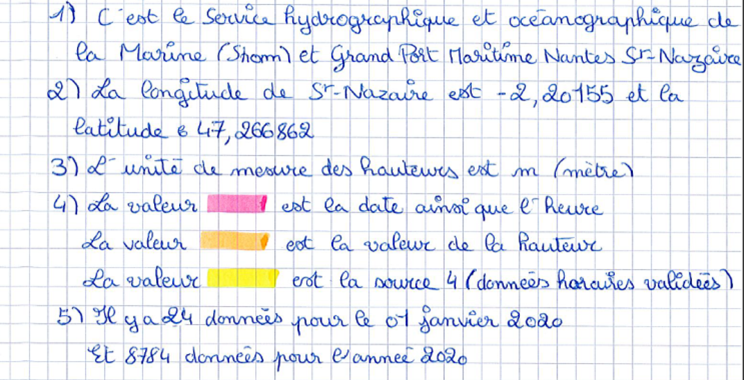 1) C'est le Service hydrographique et océanographique de
la Marine (Shom) et Grand Port Maritime Nantes St-Nazaire
2) La longitude de St-Nazaire est -2,20155 et la
latitude 47,266862
3) L'unité de mesure des hauteurs est m (mètre)
4) La valeur est la date ainsi que l'heure
La valeur est la valeur de la hauteur
La valeur est la source 4 (données horaires validées)
5) Il y a 24 données pour le 01 janvier 2020
Et 8784 données pour l'année 2020